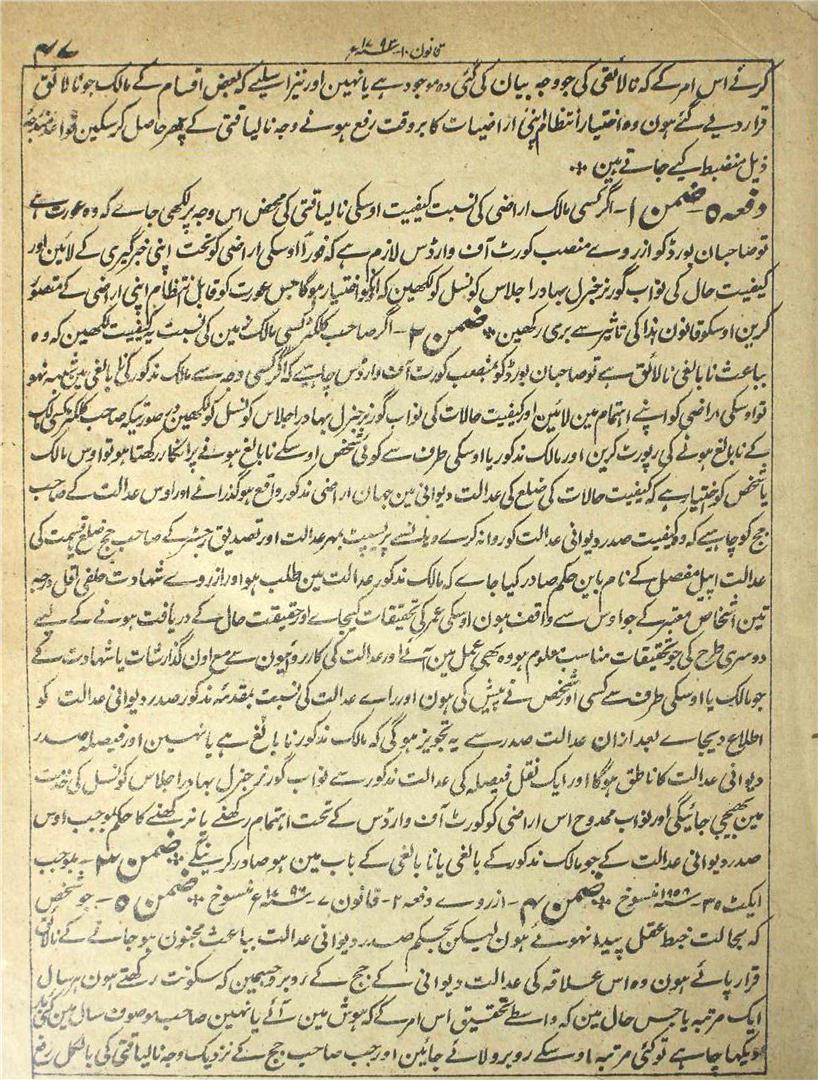 قانون ۱۰ سنہ ۱۷۹۳ع
کرنے اس امر کے کہ نالائقی کی جو وجہ بیان کی گئی وہ موجود ہے یا نہین اور نیز اسلیے کہ بعض اقسام کے مالک جو نالائق
قرار دیے گئے ہون وہ اختیار انتظام اپنی اراضیات کا بروقت رفع ہونے وجہ نالیاقتی کے پھر حاصل کر سکین قواعد مندرجہ
ذیل منضبط کیے جاتے ہین
دفعہ ۵۔ ضمن ۱۔ اگر کسی مالک اراضی کی نسبت کیفیت اوسکی نالیاقتی کی محض اس وجہ پر لکھی جاے کہ وہ عورت ہے
تو صاحبان بورڈ کو ازروے منصب کورٹ آف وارڈس لازم ہے کہ فوراً اوسکی اراضی کو تحت اپنی خبرگیری کے لائین اور
کیفیت حال کی نواب گورنر جنرل بہادر اجلاس کونسل کو لکھین کہ انکو اختیار ہوگا جس عورت کو قابل انتظام اپنی اراضی کے متصور
کرین اوسکو قانون ہذا کی تاثیر سے بری رکھین ضمن ۲۔ اگر صاحب کلکٹر کسی مالک زمین کی نسبت یہ کیفیت لکھین کہ وہ
بباعث نابالغی نالائق ہے تو صاحبان بورڈ کو بمنصب کورٹ آف وارڈس چاہیے کہ اگر کسی وجہ سے مالک مذکور کی نابالغی مین شبہہ نہو
تو اوسکی اراضی کو اپنے اہتمام مین لائین اور کیفیت حالات کی نواب گورنر جنرل بہادر اجلاس کونسل کو لکھین درصورتیکہ صاحب کلکٹر کسی مالک
کے نابالغ ہونے کی رپورٹ کرین اور مالک مذکور یا اوسکی طرف سے کوئی شخص اوسکے نابالغ ہونے پر انکار رکھتا ہو تو اوس مالک
یا شخص کو اختیار ہے کہ کیفیت حالات کی ضلع کی عدالت دیوانی مین جہان اراضی مذکور واقع ہو گذرانے اور اوس عدالت کے صاحب
جج کو چاہیے کہ وہ کیفیت صدر دیوانی عدالت کو روانہ کرے پریسپٹ بمہر عدالت اور تصدیق رجسٹر کے صاحب جج ضلع یا قسمت کی
عدالت اپیل مفصل کے نام باین حکم صادر کیا جاے کہ مالک مذکور عدالت مین طلب ہو اور ازروے شہادت حلفی اقل درجہ
تین اشخاص معتبر کے جو اوس سے واقف ہون اوسکی عمر کی تحقیقات کیجاے اور حقیقت حال کے دریافت ہونے کے لیے
دوسری طرح کی جو تحقیقات مناسب معلوم ہو وہ بھی عمل مین آئے اور عدالت کی کارروائیون سے مع اون گذارشات یا شہادت کے
جو مالک یا اوسکی طرف سے کسی اور شخص نے پیش کی ہون اور راے عدالت کی نسبت مقدمہ مذکور صدر دیوانی عدالت کو
اطلاع دیجاے بعد ازان عدالت صدر سے یہ تجویز ہوگی کہ مالک مذکور نابالغ ہے یا نہین اور فیصلہ صدر
دیوانی عدالت کا ناطق ہوگا اور ایک نقل فیصلہ کی عدالت مذکور سے نواب گورنر جنرل بہادر اجلاس کونسل کی خدمت
مین بھیجی جائیگی اور نواب ممدوح اس اراضی کو کورٹ آف وارڈس کے تحت اہتمام رکھنے یا نہ رکھنے کا حکم بموجب اوس
صدر دیوانی عدالت کے جو مالک مذکور کے بالغی یا نابالغی کے باب مین ہو صادر کرینگے ضمن ۳۔ بموجب
ایکٹ ۳۵ سنہ ۱۸۵۸ع منسوخ ضمن ۴۔ ازروے دفعہ ۲۔ قانون ۷ سنہ ۱۷۹۶ع منسوخ ضمن ۵۔ جو شخص
کہ بحالت خبط عقل پیدا نہوئے ہون لیکن بحکم صدر دیوانی عدالت بباعث مجنون ہو جانے کے نالائق
قرار پائے ہون وہ اس علاقہ کی عدالت دیوانی کے جج کے روبرو جسمین کہ سکونت رکھتے ہون ہر سال
ایک مرتبہ یا جس حال مین کہ واسطے تحقیق اس امر کے کہ ہوش مین آئے یا نہین صاحب موصوف سال مین کئی بار
دیکھا چاہے تو کئی مرتبہ اوسکے روبرو لائے جائین اور جب صاحب جج کے نزدیک وجہ نالیاقتی کی بالکل رفع